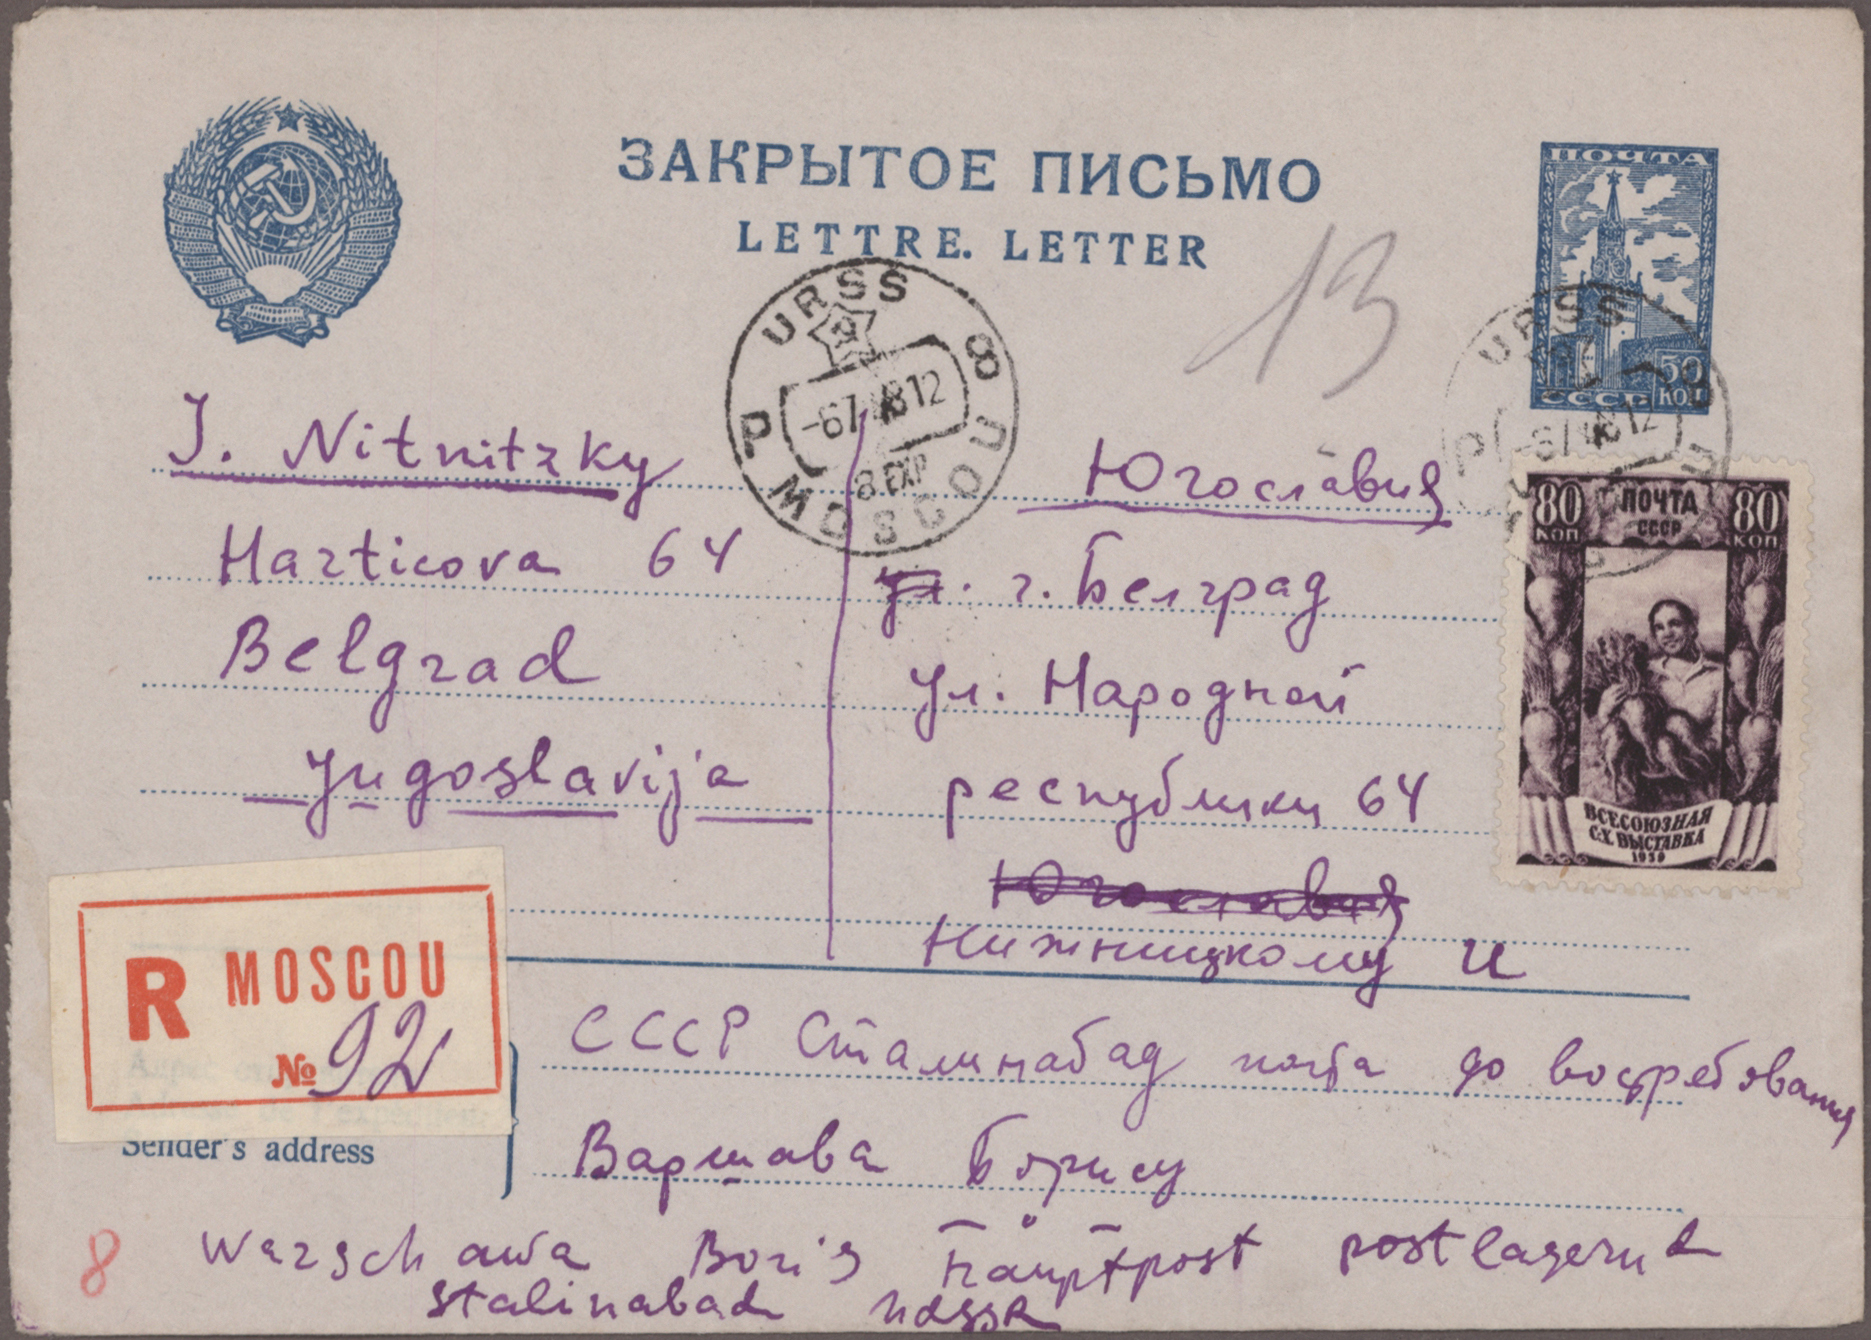 ЗАКРЫТОЕ ПИСЬМО
LETTRE. LETTER
ПОЧТА
50
КОП
СССР
13
URSS
8
-67 812
8 EXP
P MOSCOU
URSS
P
J. Nitnitzky
Harticova 64
Belgrad
Jugoslavija
Югославия
г. Белград
ул. Народной
республики 64
Югославия
Нижницкому И
80 ПОЧТА 80
КОП СССР КОП
ВСЕСОЮЗНАЯ
С.-Х. ВЫСТАВКА
1939
R MOSCOU
№ 92
Sender's address
СССР Сталинабад почта до востребования
Варшава Борису
8
Warschawa Boris Hauptpost postlagernd
Stalinabad UdSSR